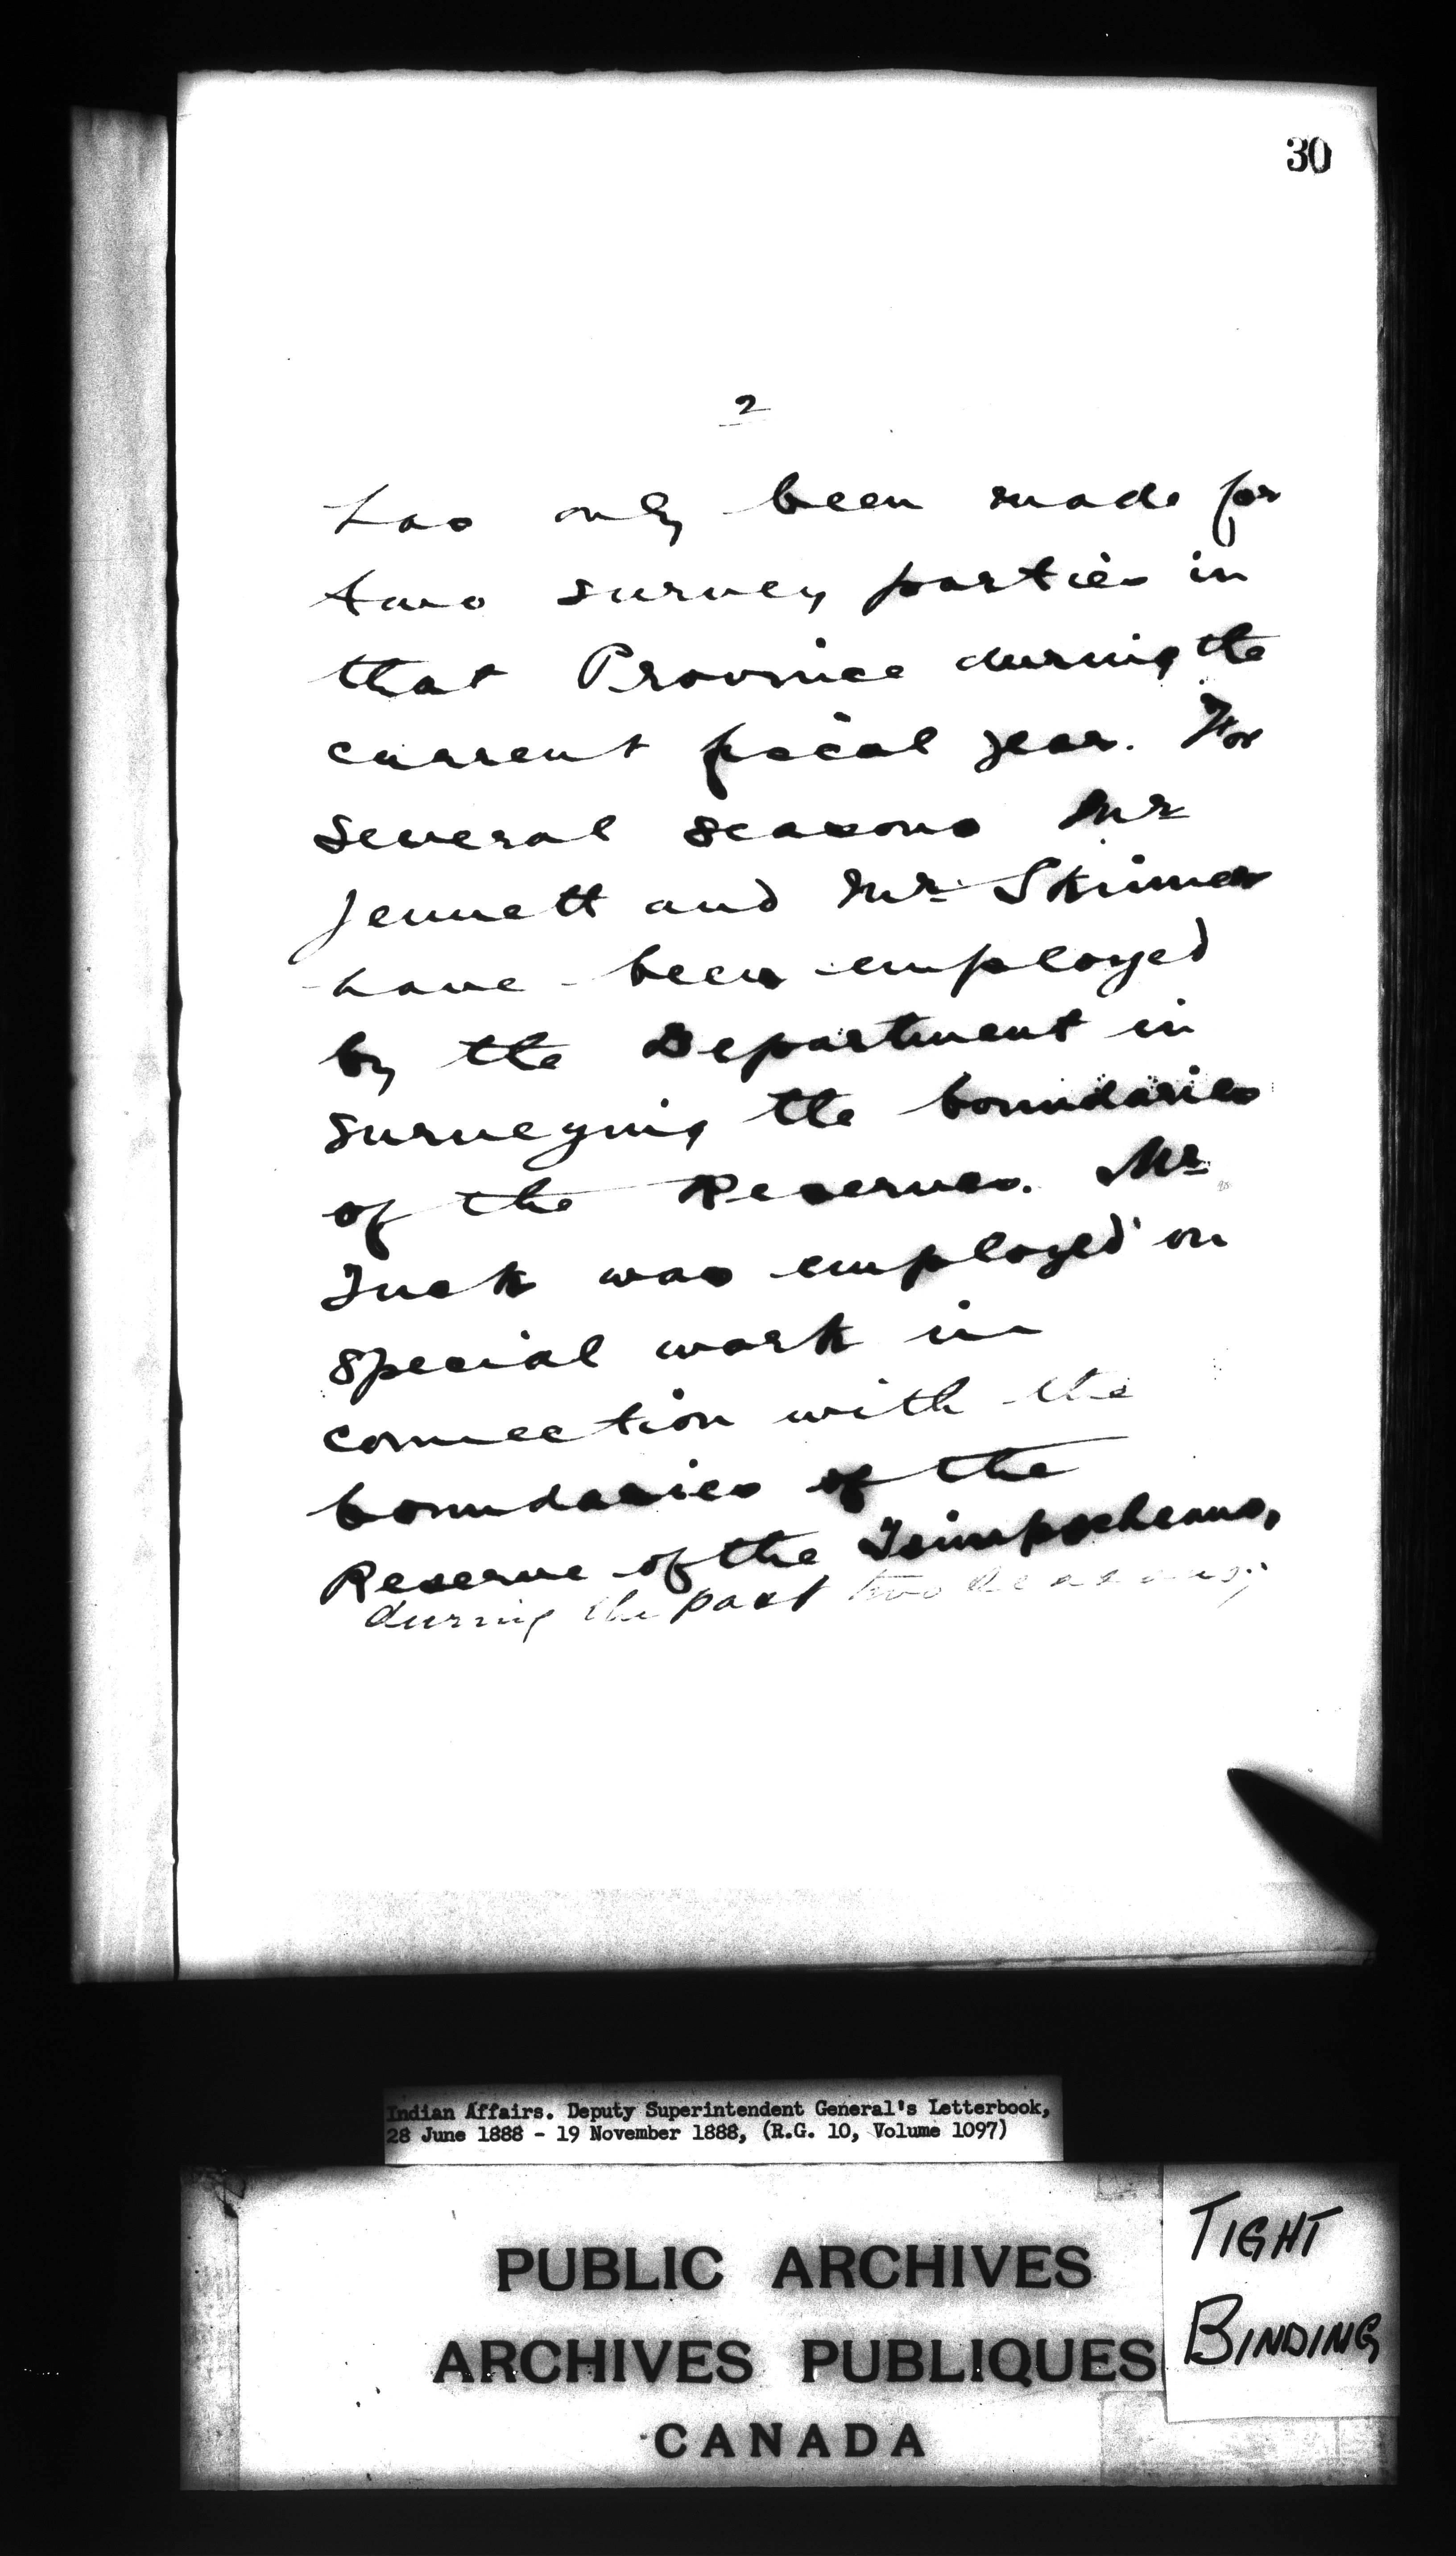 30
2
has only been made for
two survey parties in
that Province during the
current fiscal year. For
several seasons Mr
Jennett and Mr. Skinner
have been employed
by the Department in
surveying the boundaries
of the Reserves. Mr
Tuck was employed on
special work in
connection with the
boundaries of the
Reserve of the Tsimpseheans,
during the past two seasons;
Indian Affairs. Deputy Superintendent General's Letterbook,
28 June 1888 - 19 November 1888, (R.G. 10, Volume 1097)
PUBLIC ARCHIVES
ARCHIVES PUBLIQUES
CANADA
TIGHT
BINDING